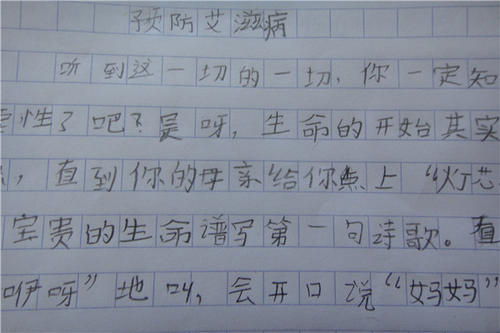 预防艾滋病
听到这一切的一切，你一定知
性了吧？是呀，生命的开始其实
，直到你的母亲给你点上“灯芯
宝贵的生命谱写第一句诗歌。直
咿呀”地叫，会开口说“妈妈”